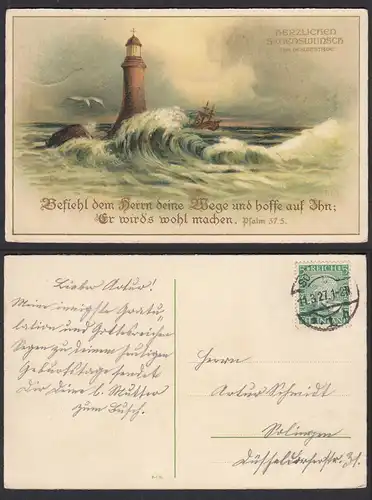 HERZLICHEN
SEGENSWUNSCH
ZUM GEBURTSTAGE
Befiehl dem Herrn deine Wege und hoffe auf Ihn;
Er wird's wohl machen. Psalm 37.5.
Lieber Artur!
Meine innigste Gratu=
lation und Gottesreichen
Segen zu deinem heutigen
Geburtstage sendet
Dir deine l. Mutter
zum Busch.
11.3.27.1-2N
Herrn
Artur Schmidt
Solingen
Düsseldorferstr. 31.